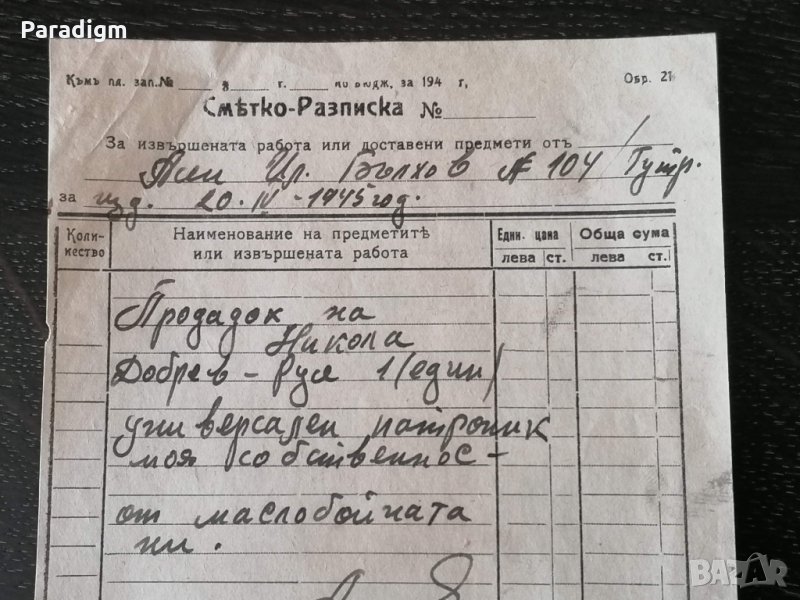 Paradigm
Къмъ пл. зап. № 8 г. по бюдж. за 194 г, Обр. 21
Смѣтко-Разписка №
За извършената работа или доставени предмети отъ
Ил. № 104
за изд. 20. IV - 1945 год.
Коли-чество
Наименование на предметитѣ или извършената работа
Един. цена
Обща сума
лева ст. лева ст.
Продадох на
Никола
Добрев - Русе 1 (един)
универсален патронник
моя собственнос-
от маслобойната
ни.
BAZAR